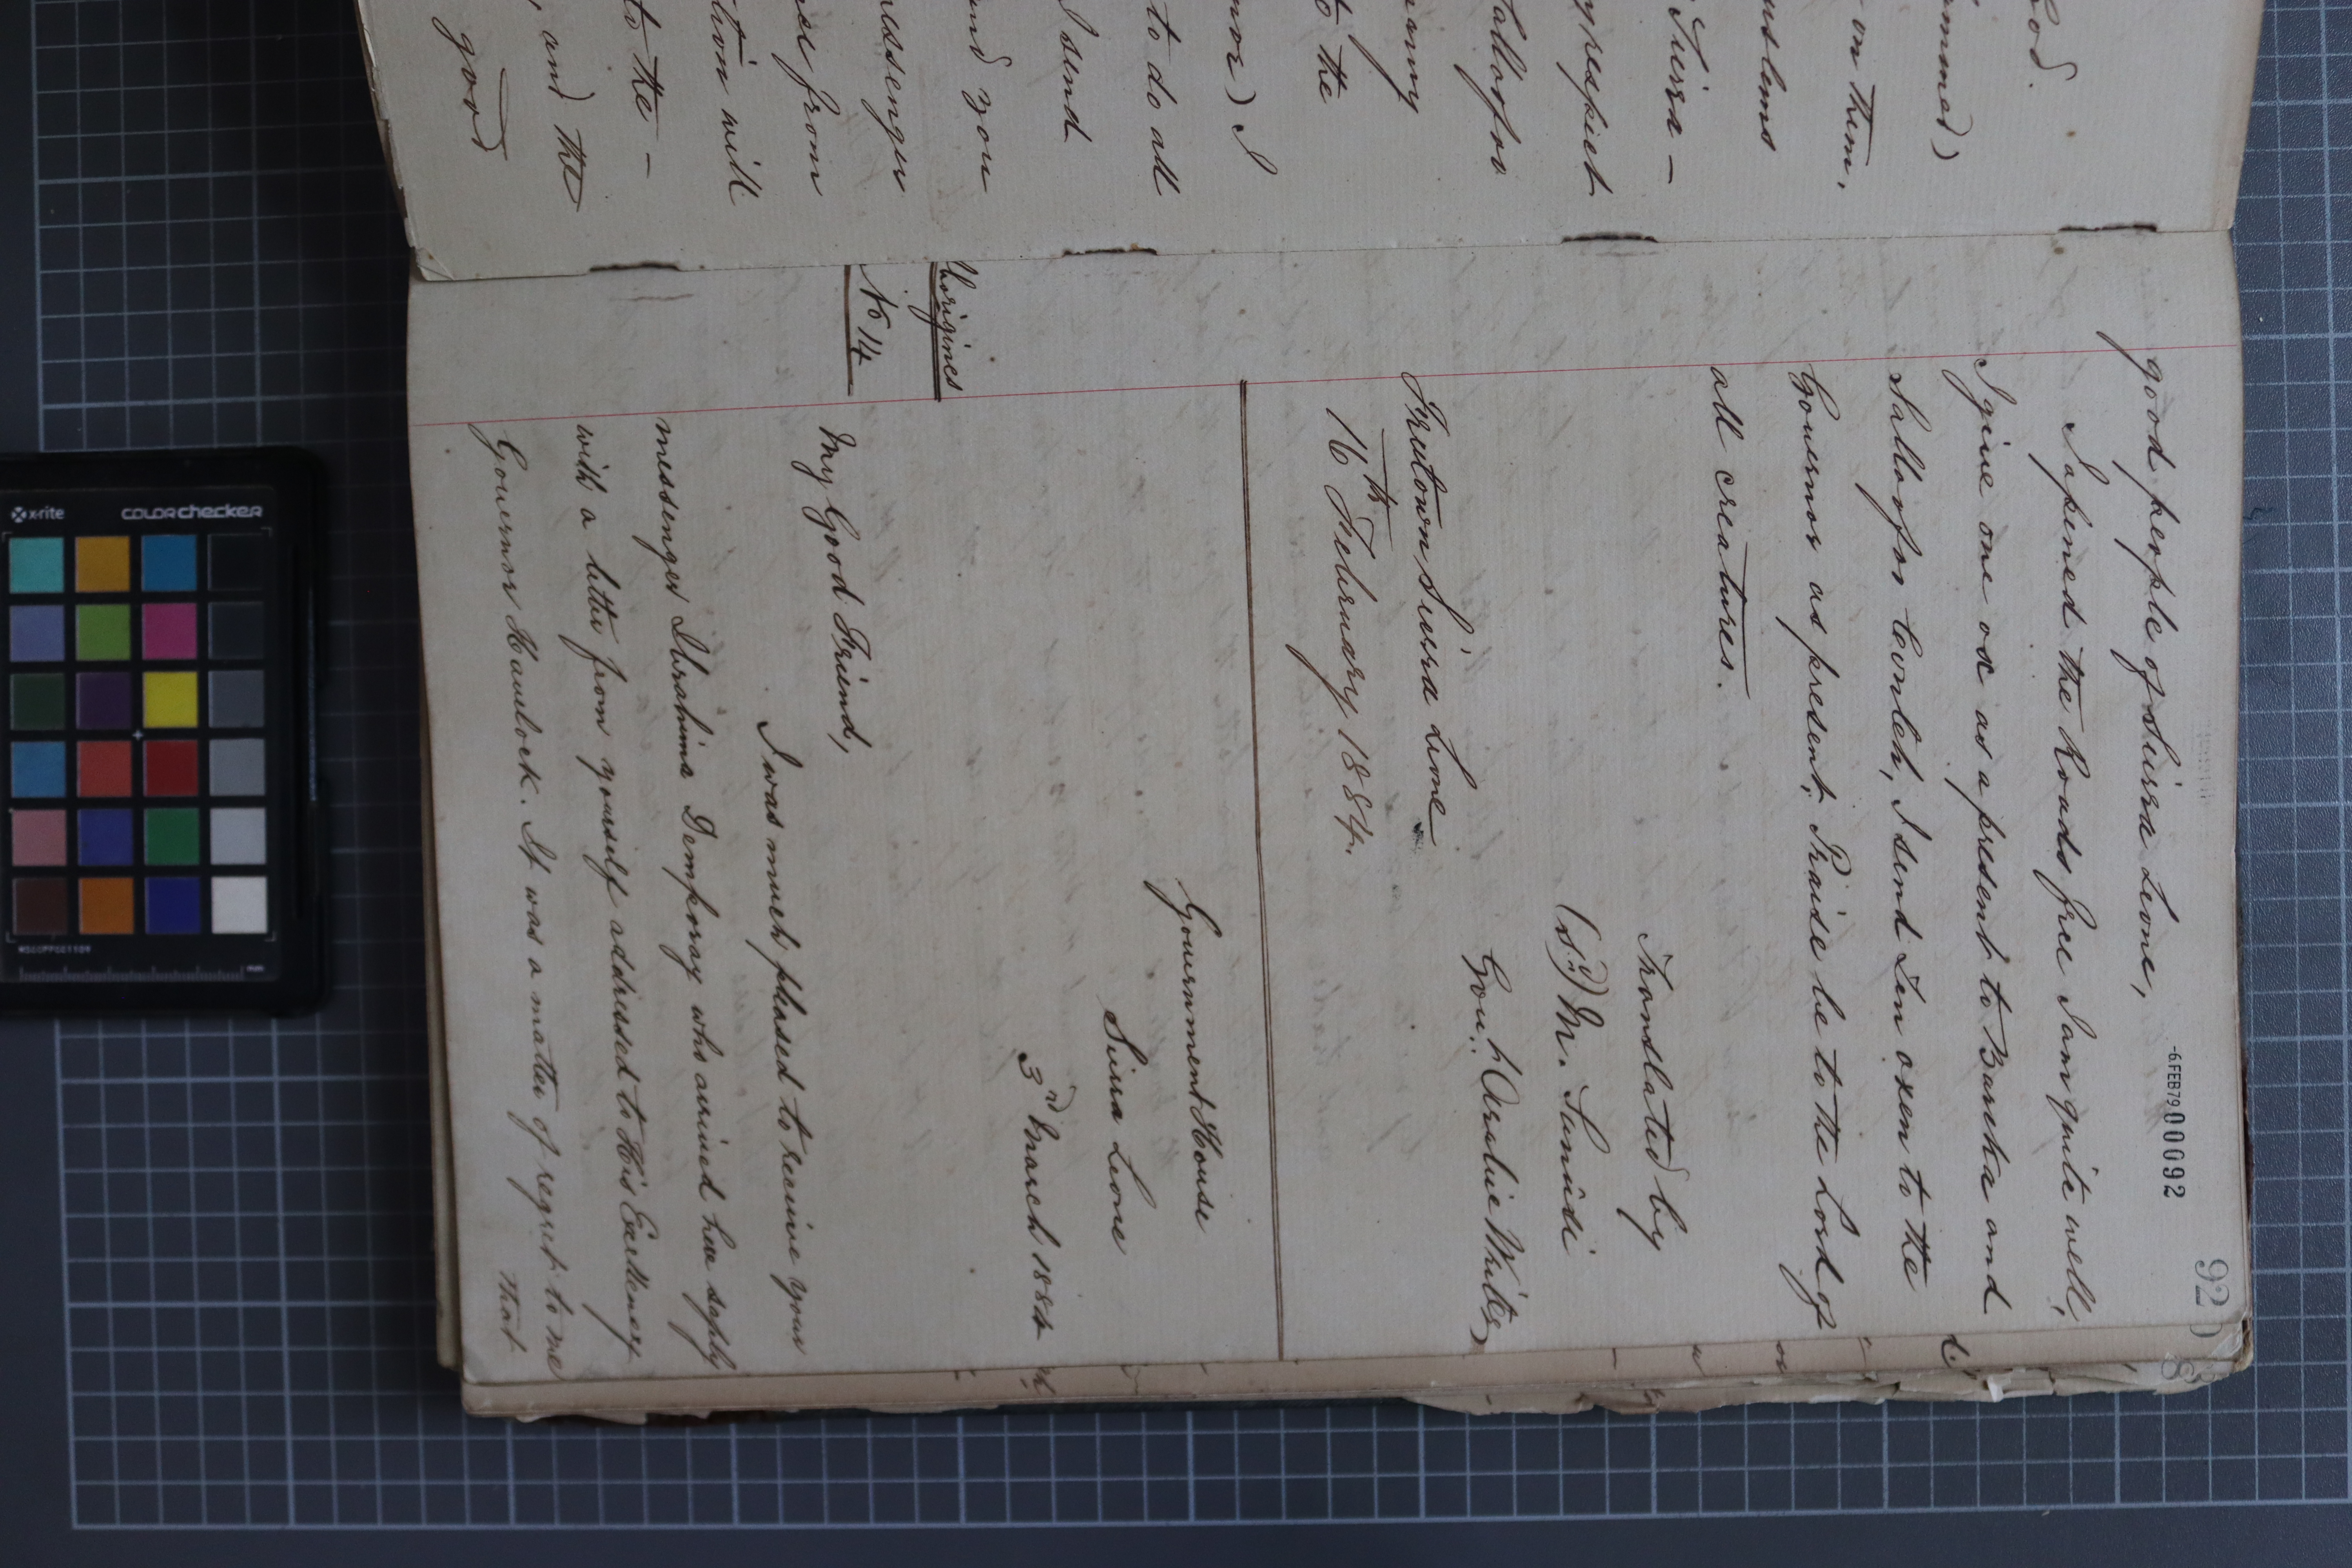 ood.
ammed)
on them,
uslims
Sierra -
y respect
Tallofoo
many
to the
nor) I
to do all
I send
and you
messenger
ise from
tion will
to the -
, and the
good
-6 FEB 79 000092
92
good people of Sierra Leone,
I opened the Roads free I am quite well,
I give one ox as a present to Barka and
Sallofoo Conteh, I send Ten oxen to the
Governor as present, Praise be to the Lord of
all creatures.
Translated by
(Sd) M. Sanusi
Govt. Arabic Writer
Freetown Sierra Leone
16th February 1884.
Government House
Sierra Leone
3rd March 1884
Aborigines
No 14
My Good Friend,
I was much pleased to receive your
messenger Ibrahima Demporay who arrived here safely
with a letter from yourself addressed to His Excellency
Governor Havelock. It was a matter of regret to me
that